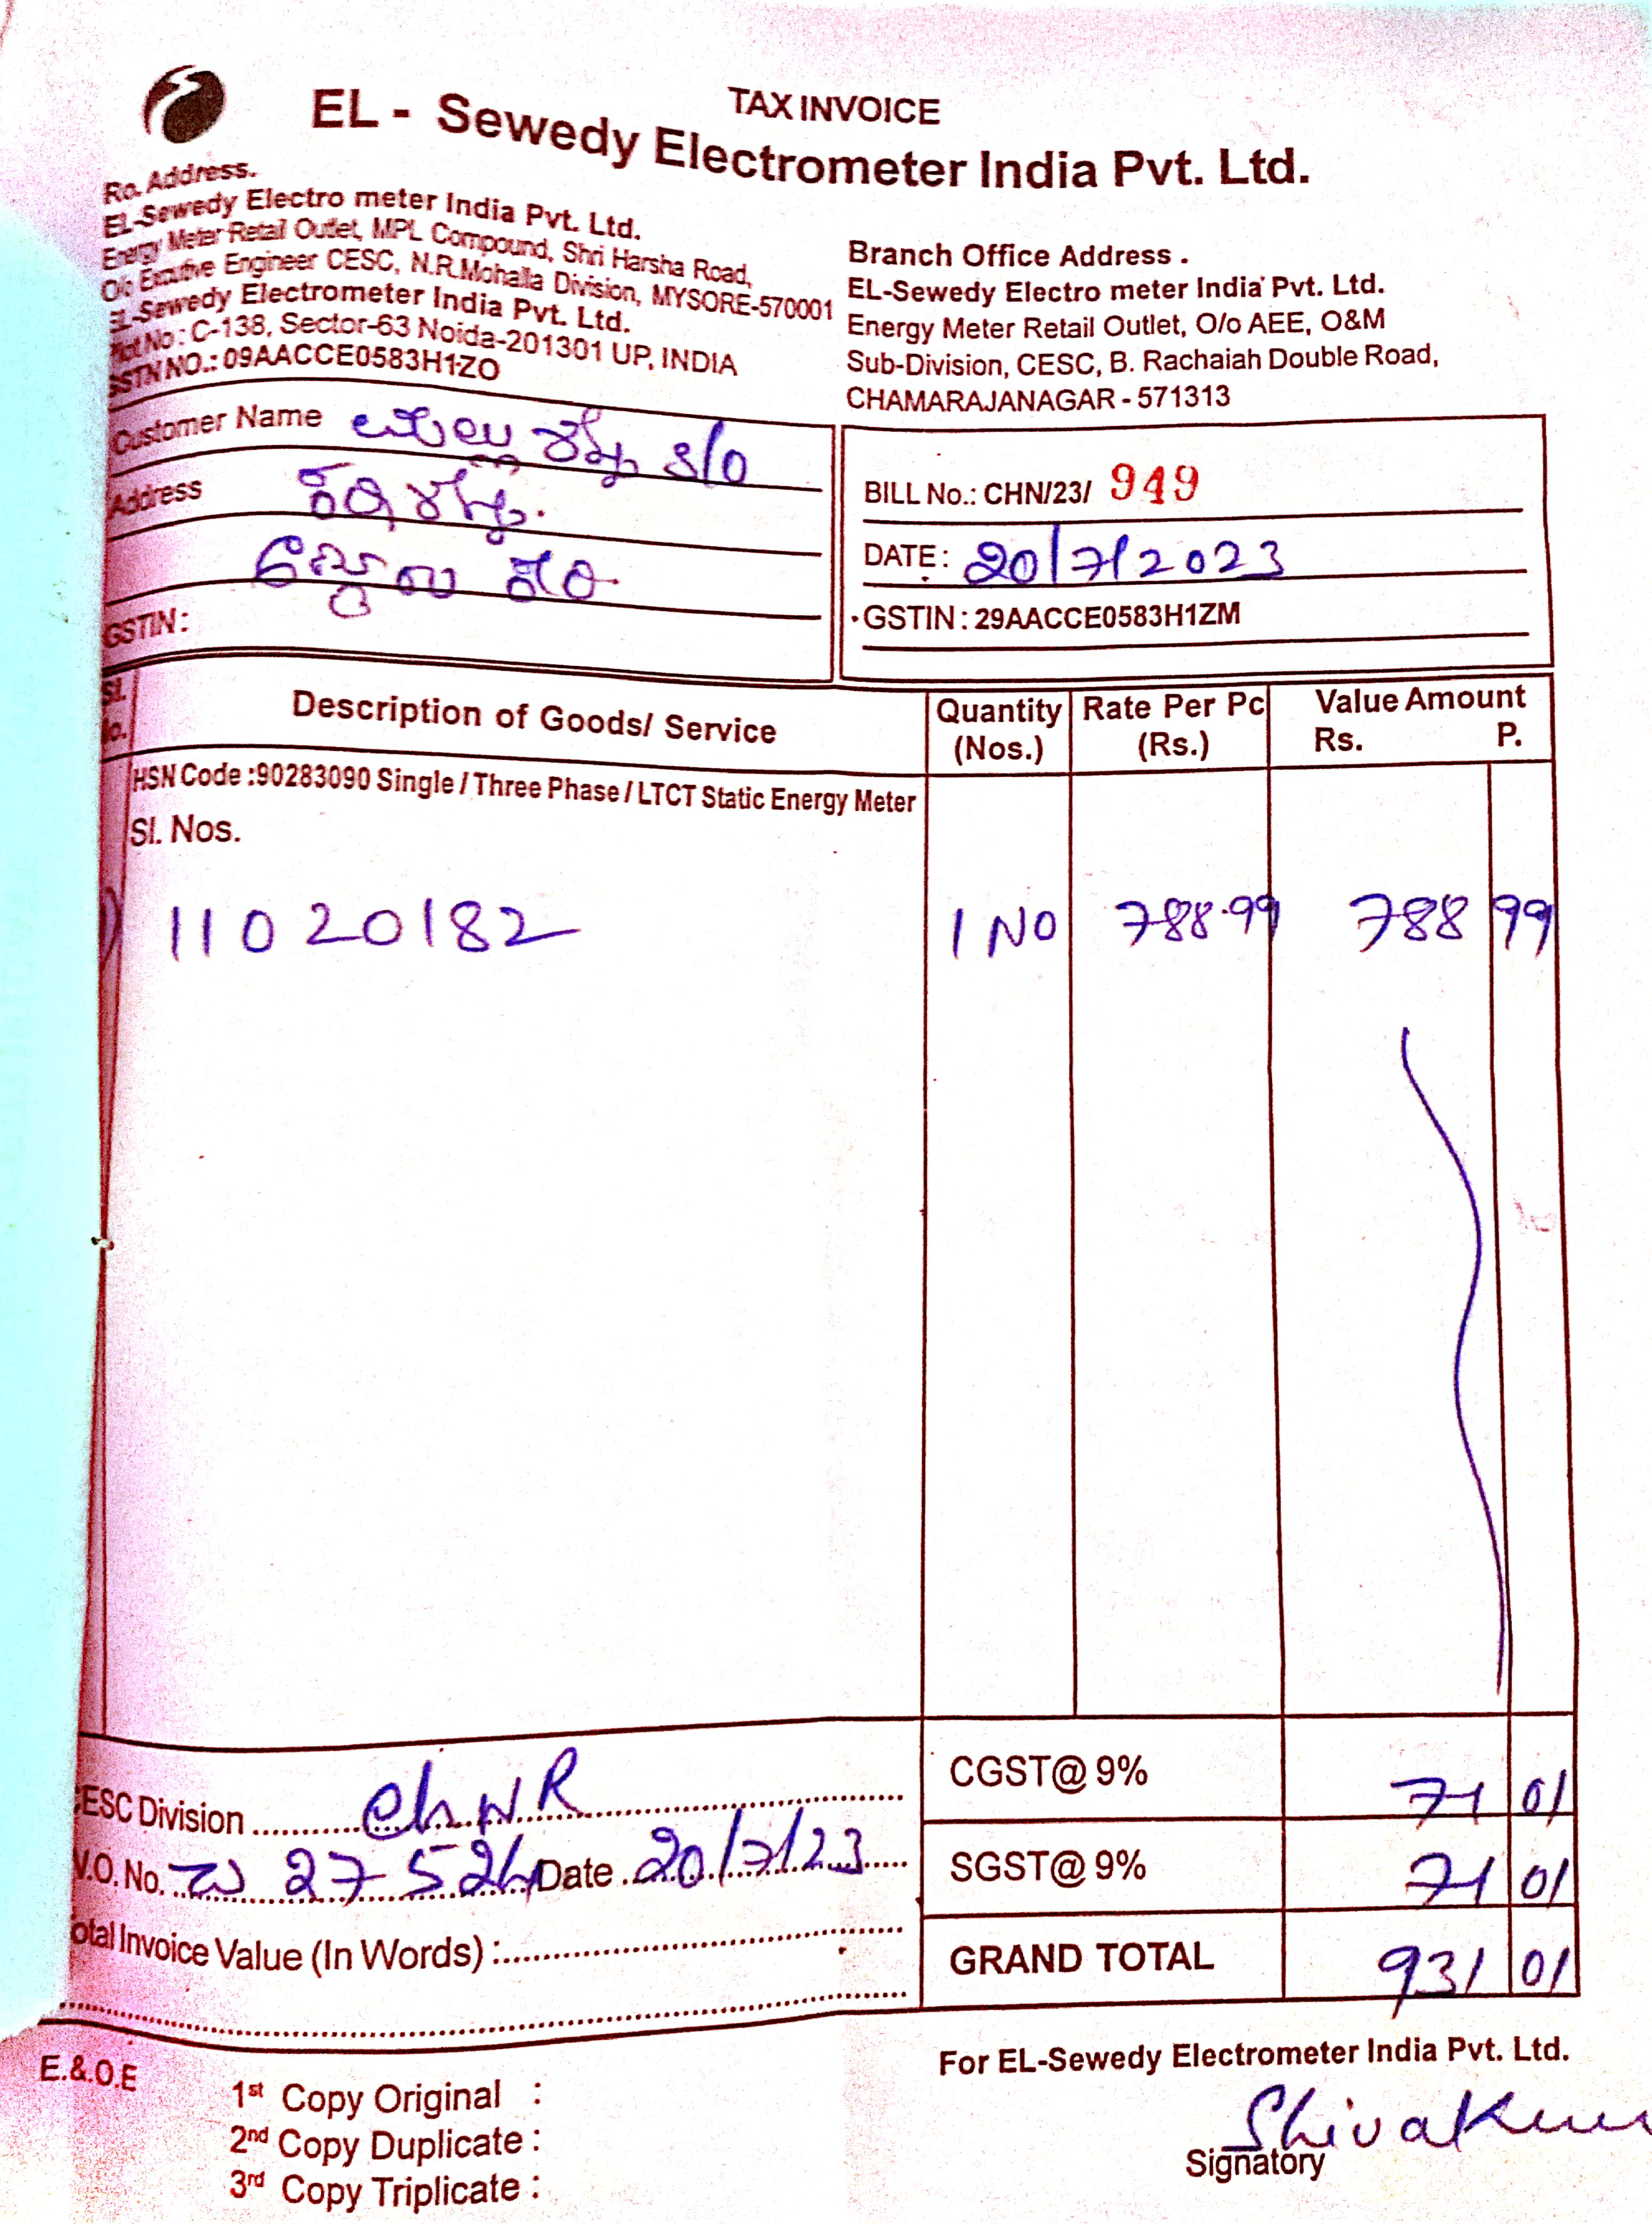 TAX INVOICE
EL - Sewedy Electrometer India Pvt. Ltd.
Ro. Address.
EL-Sewedy Electro meter India Pvt. Ltd.
Energy Meter Retail Outlet, MPL Compound, Shri Harsha Road,
O/o Excutive Engineer CESC, N.R.Mohalla Division, MYSORE-570001
EL-Sewedy Electrometer India Pvt. Ltd.
Plot No : C-138, Sector-63 Noida-201301 UP, INDIA
GSTN NO.: 09AACCE0583H1ZO
Branch Office Address .
EL-Sewedy Electro meter India Pvt. Ltd.
Energy Meter Retail Outlet, O/o AEE, O&M
Sub-Division, CESC, B. Rachaiah Double Road,
CHAMARAJANAGAR - 571313
Customer Name S/O
Address
GSTIN :
BILL No.: CHN/23/ 949
DATE : 20/7/2023
GSTIN : 29AACCE0583H1ZM
Sl. No. Description of Goods/ Service Quantity (Nos.) Rate Per Pc (Rs.) Value Amount Rs. P.
HSN Code :90283090 Single / Three Phase / LTCT Static Energy Meter
Sl. Nos.
1) 11020182 1 NO 788.99 788 99
CESC Division ChNR
CGST@ 9% 71 01
V.O. No. 27524 Date 20/7/23
SGST@ 9% 71 01
Total Invoice Value (In Words) :
GRAND TOTAL 931 01
E.&.O.E
For EL-Sewedy Electrometer India Pvt. Ltd.
1st Copy Original :
2nd Copy Duplicate :
3rd Copy Triplicate :
Signatory